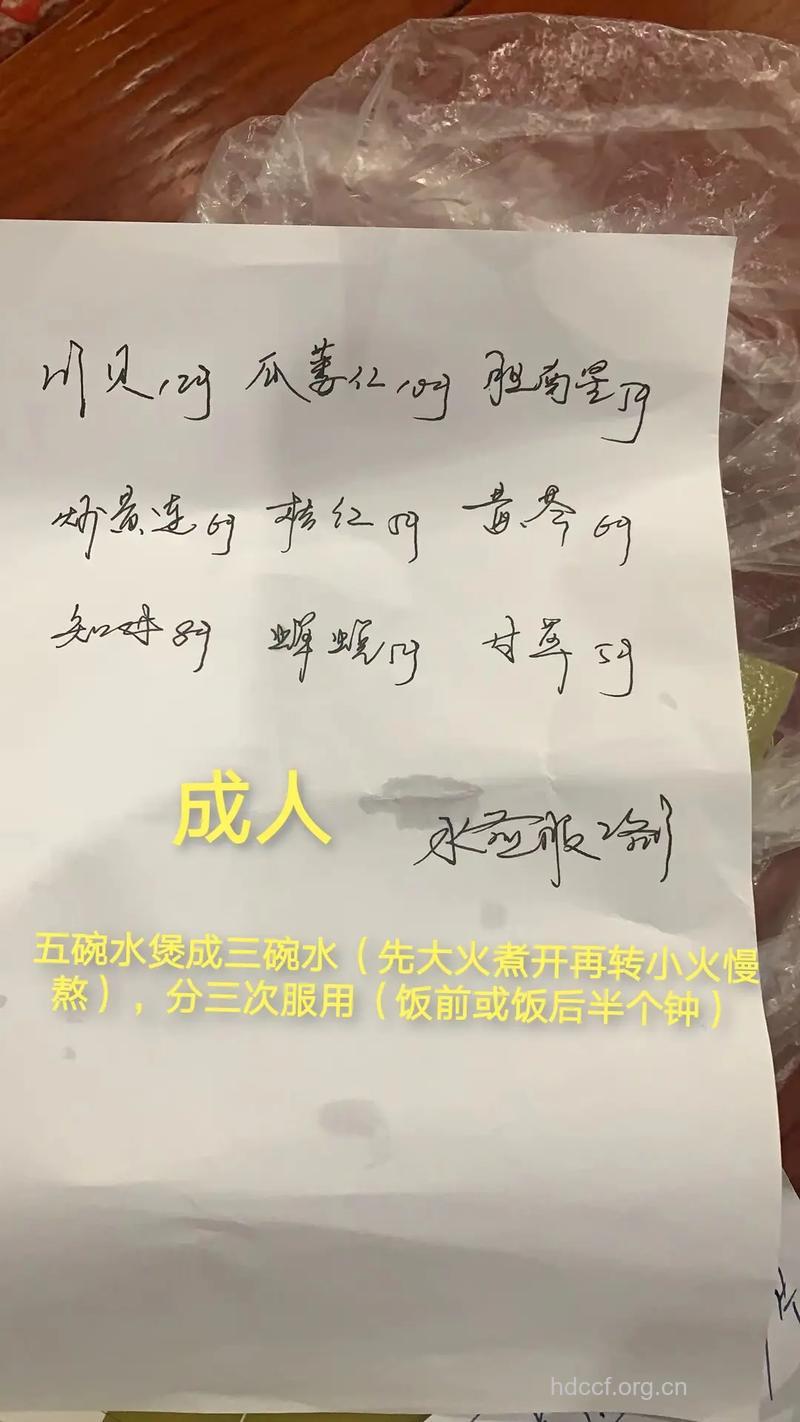 川贝12g 瓜蒌仁10g 胆南星5g
炒黄连6g 桔红5g 黄芩6g
知母8g 蝉蜕5g 甘草5g
成人
水煎服2剂
五碗水煲成三碗水（先大火煮开再转小火慢
熬），分三次服用（饭前或饭后半个钟）
hdccf.org.cn